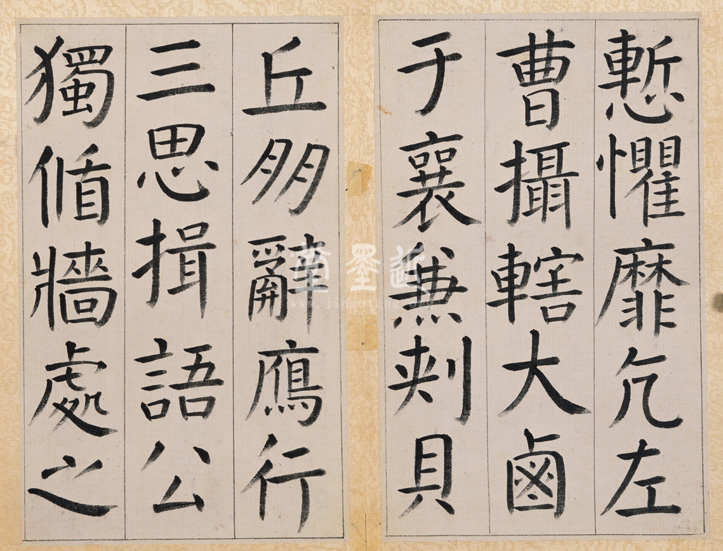 慙懼靡亢左
曹攝轄大鹵
于襄兼刺貝
丘朋辭鴈行
三思揖語公
獨循牆處之